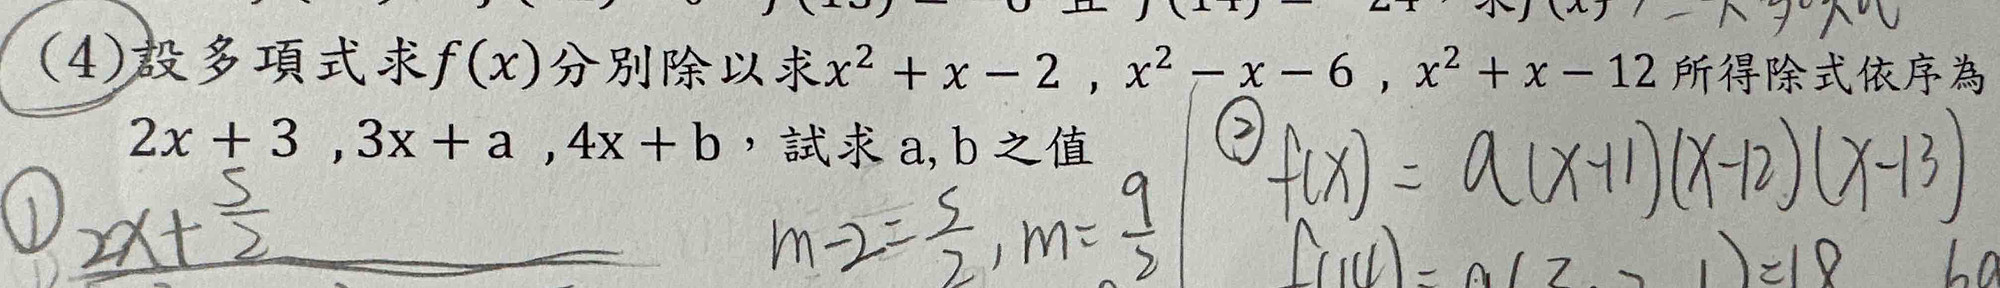 (4)設多項式求f(x)分別除以求x² + x − 2 , x² − x − 6 , x² + x − 12 所得除式依序為
2x + 3 , 3x + a , 4x + b，試求 a, b 之值
① 2x + 5/2
m-2 = 5/2 , m = 9/2
② f(x) = a(x-11)(x-12)(x-13)